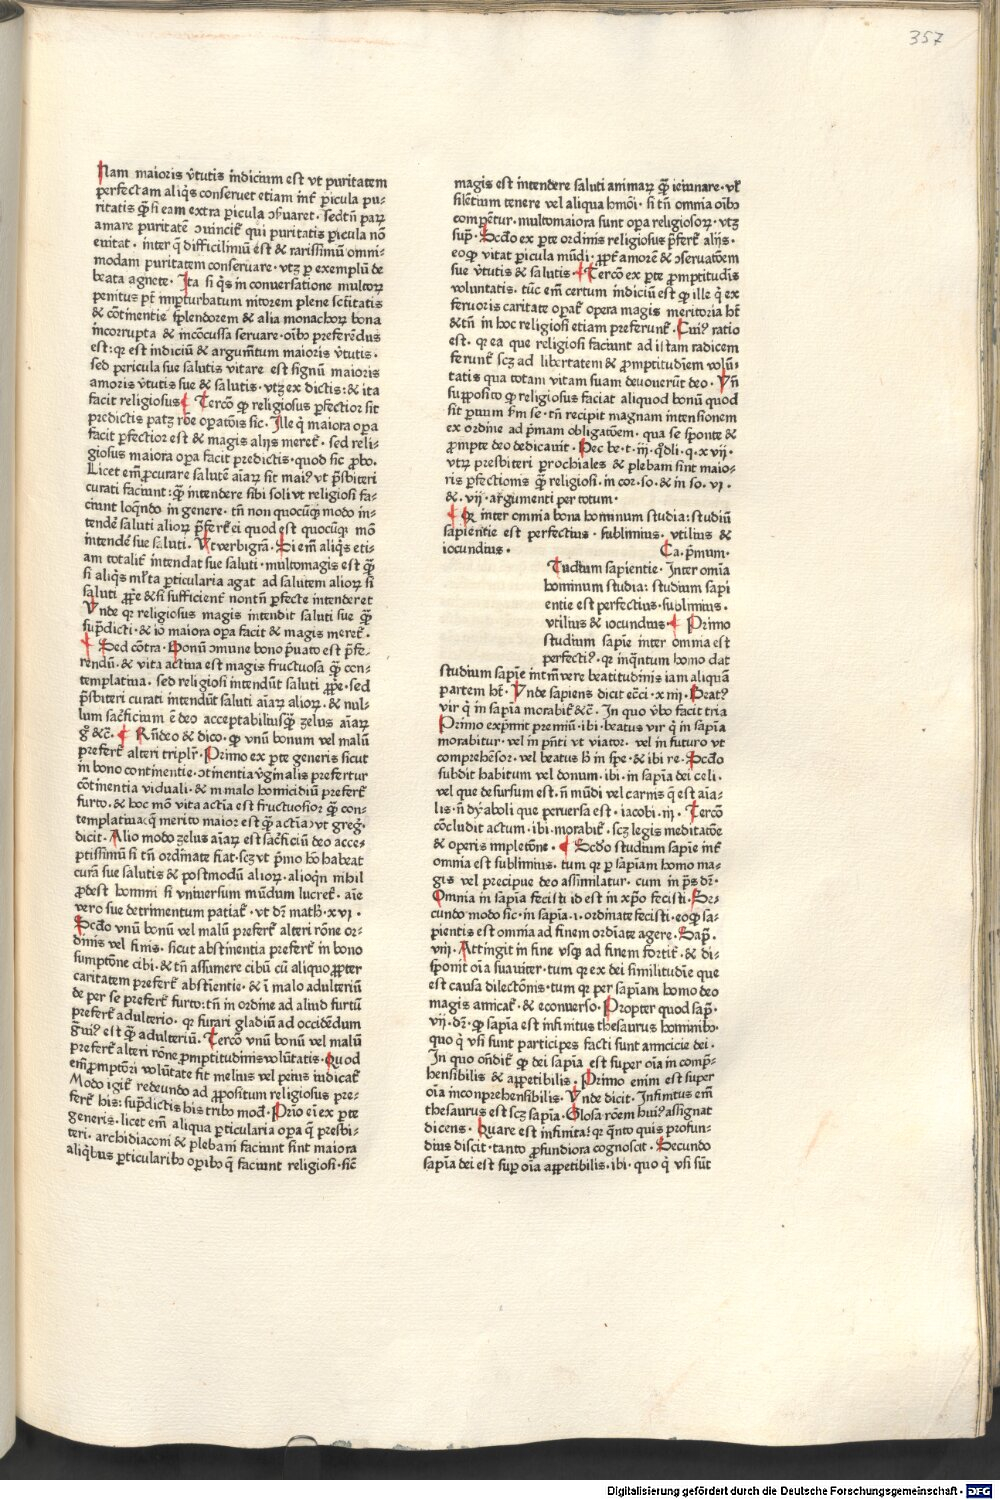 357
Nam maioris v̄tutis indicium est vt puritatem
perfectam aliq̄s conseruet etiam int̄ picula pu-
ritatis q̄ȝ si eam extra picula ↄ̄ßuaret · Sed tn̄ paꝝ
amare puritatē ↄuincit̄ qui puritatis picula nō
euitat · inter q̄ difficilimū est & rarissimū omni-
modam puritatem conseruare · vtȝ p exemplū de
beata agnete · Ita si q̄s in conuersatione multoꝝ
penitus pt̄ imp̄turbatum nitorem plene sc̄titatis
& cōtinentie splendorem & alia monachoꝝ bona
incorrupta & incōcussa seruare · oībꝰ preferēdus
est: qꝛ est indiciū & argum̄tum maioris v̄tutis ·
sed pericula sue salutis vitare est signū maioris
amoris v̄tutis sue & salutis · vtȝ ex dictis: & ita
facit religiosus ¶ Tercō ꝙ religiosus p̄fectior sit
predictis patȝ rōe opatōis sic · Ille q̄ maiora opa
facit p̄fectior est & magis alijs meret̄ · sed reli-
giosus maiora opa facit predictis · quod sic p̄bo ·
Licet em̄ p̄curare salutē aīaꝝ sit maiꝰ vt p̄sbiteri
curati faciunt: q̄ȝ intendere sibi soli vt religiosi fa-
ciunt loq̄ndo in genere · tn̄ non quocūq̄ modo in-
tendē saluti alioꝝ p̄fert̄ ei quod est quocūq̄ mō
intendē sue saluti · Vt verbigr̄a · Si em̄ aliq̄s eti-
am totalit̄ intendat sue saluti · multomagis est q̄ȝ
si aliq̄s ml̄ta p̄ticularia agat ad salutem alioꝝ si
saluti p̄p̄e & si sufficient̄ non tn̄ p̄fecte intenderet
Vnde qꝛ religiosus magis intendit saluti sue q̄ȝ
sup̄dicti · & iō maiora opa facit & magis meret̄ ·
¶ Sed cōtra · Bonū ↄmune bono p̄uato est p̄fe-
rendū · & vita actiua est magis fructuosa q̄ȝ con-
templatiua · sed religiosi intendūt saluti p̄p̄e · sed
p̄sbiteri curati intendūt saluti aīaꝝ alioꝝ · & nul-
lum sac̄ficium ē deo acceptabiliusq̄ȝ zelus aīaꝝ
g̊ &c̄ · ¶ Rn̄deo & dico · ꝙ vnū bonum vel malū
prefert̄ alteri triplr̄ · Primo ex pte generis sicut
in bono continentie · ↄtinentia v̄ginalis prefertur
cōtinentia viduali · & in malo homicidiū prefert̄
furto · & hoc mō vita actīa est fructuosior q̄ȝ con-
templatiua (q̄ merito maior est q̄ȝ actīa) vt greg̊ ·
dicit · Alio modo zelus aīaꝝ est sac̄ficiū deo acce-
ptissimū si tn̄ ordinate fiat · scȝ vt p̄mo hō habeat
curā sue salutis & postmodū alioꝝ · alioqn̄ nihil
p̄dest homini si vniuersum mūdum lucret̄ · aīe
vero sue detrimentum patiat̄ · vt dr̄ math̄ · xvi ·
Scd̄o vnū bonū vel malū prefert̄ alteri rōne or-
dinis vel finis · sicut abstinentia prefert̄ in bono
sumptōne cibi · & tn̄ assumere cibū cū aliquo p̄pter
caritatem prefert̄ abstīentie · & ī malo adulteriū
de per se prefert̄ furto: tn̄ in ordine ad aliud furtū
prefert̄ adulterio · qꝛ furari gladiū ad occidēdum
g̊uiꝰ est q̄ȝ adulteriū · Tercō vnū bonū vel malū
prefert̄ alteri rōne p̄mptitudinis volūtatis · Quod
em̄ p̄mptōri volūtate fit melius vel peius iudicat̄
Modo igit̄ redeundo ad p̄positum religiosus pre-
fert̄ his: sup̄dictis his tribꝰ mod̄ · Prīo eī ex pte
generis · licet em̄ aliqua p̄ticularia opa q̄ presbi-
teri · archidiaconi & plebani faciunt sint maiora
aliq̄bus p̄ticularibꝰ opibꝰ q̄ faciunt religiosi · sic̄
magis est intendere saluti animaꝝ q̄ȝ ieiunare · vl̄
silētium tenere vel aliqua hmōi · si tn̄ omnia oībꝰ
comp̄entur · multomaiora sunt opa religiosoꝝ · vtȝ
sup̄ · Scd̄o ex pte ordinis religiosus p̄fert̄ alijs ·
eoꝙ vitat picula mūdi · p̄pt̄ amorē & ↄseruatōem
sue v̄tutis & salutis · ¶ Tercō ex pte p̄mptitudis
voluntatis · tūc em̄ certum indiciū est ꝙ ille q̄ ex
feruoris caritate opat̄ opera magis meritoria ht̄
& tn̄ in hoc religiosi etiam preferunt̄ · Cuiꝰ ratio
est · qꝛ ea que religiosi faciunt ad istam radicem
ferunt̄ scȝ ad libertatem & p̄mptitudīem volū-
tatis qua totam vitam suam deuouerūt deo · Vn̄
supposito ꝙ religiosus faciat aliquod bonū quod
sit puum s̄m se · tn̄ recipit magnam intensionem
ex ordine ad p̄mam obligatōem · qua se sponte &
p̄mpte deo dedicauit · Hec be · t · iii · q̄dli · q · xvii ·
vtꝝ presbiteri prochiales & plebani sint maio-
ris p̄fectionis q̄ȝ religiosi · in cor · so · & in so · vi ·
& · vii · argumenti per totum ·
¶ Qꝛ inter omnia bona hominum studia: studiū
sapientie est perfectius · sublimius · vtilius &
iocundius · Ca · p̄mum ·
Tudium sapientie · Inter om̄ia
hominum studia: studium sapi
entie est perfectius · sublimius ·
vtilius & iocundius · ¶ Primo
studium sapīe inter omnia est
perfectiꝰ · qꝛ inq̄ntum homo dat
studium sapīe intm̄ vere beatitudinis iam aliquā
partem ht̄ · Vnde sapiens dicit ecc̄i · xiiii · Beatꝰ
vir q̄ in sapīa morabit̄ &c̄ · In quo v̄bo facit tria
Primo exp̄mit premiū · ibi · beatus vir q̄ in sapīa
morabitur · vel in pn̄ti vt viator · vel in futuro vt
comprehēsor · vel beatus h̄ in spe · & ibi re · Scd̄o
subdit habitum vel donum · ibi · in sapīa dei celi ·
vel que desursum est · n̄ mūdi vel carnis q̄ est aīa-
lis · n̄ dyaboli que peruersa est · iacobi · iii · Tercō
cōcludit actum · ibi · morabit̄ · scȝ legis meditatōe
& operis impletōne · ¶ Scd̄o studium sapīe int̄
omnia est sublimius · tum qꝛ p sapīam homo ma-
gis vel precipue deo assimilatur · cum in p̄s dr̄ ·
Omnia in sapīa fecisti id est in xp̄o fecisti · Se-
cundo modo sic · in sapīa · i · ordinate fecisti · eoꝙ sa-
pientis est omnia ad finem ordīate agere · Sap̄ ·
viii · Attingit in fine vsq̄ ad finem fortit̄ · & di-
sponit oīa suauiter · tum qꝛ ex dei similitudīe que
est causa dilectōnis · tum qꝛ per sapīam homo deo
magis amicat̄ · & econuerso · Propter quod sap̄ ·
vii · dr̄ · ꝙ sapīa est infinitus thesaurus hominibꝰ ·
quo q̄ vsi sunt participes facti sunt amicicie dei ·
In quo on̄dit̄ ꝙ dei sapīa est super oīa incomp̄-
hensibilis & appetibilis · Primo enim est super
oīa incomprehensibilis · Vnde dicit · Infinitus em̄
thesaurus est scȝ sapīa · Glosa rōem huiꝰ assignat
dicens · Quare est infinita? qꝛ q̄nto quis profun-
dius discit · tanto p̄fundiora cognoscit · Secundo
sapīa dei est sup oīa appetibilis · ibi · quo q̄ vsi sūt
Digitalisierung gefördert durch die Deutsche Forschungsgemeinschaft - DFG